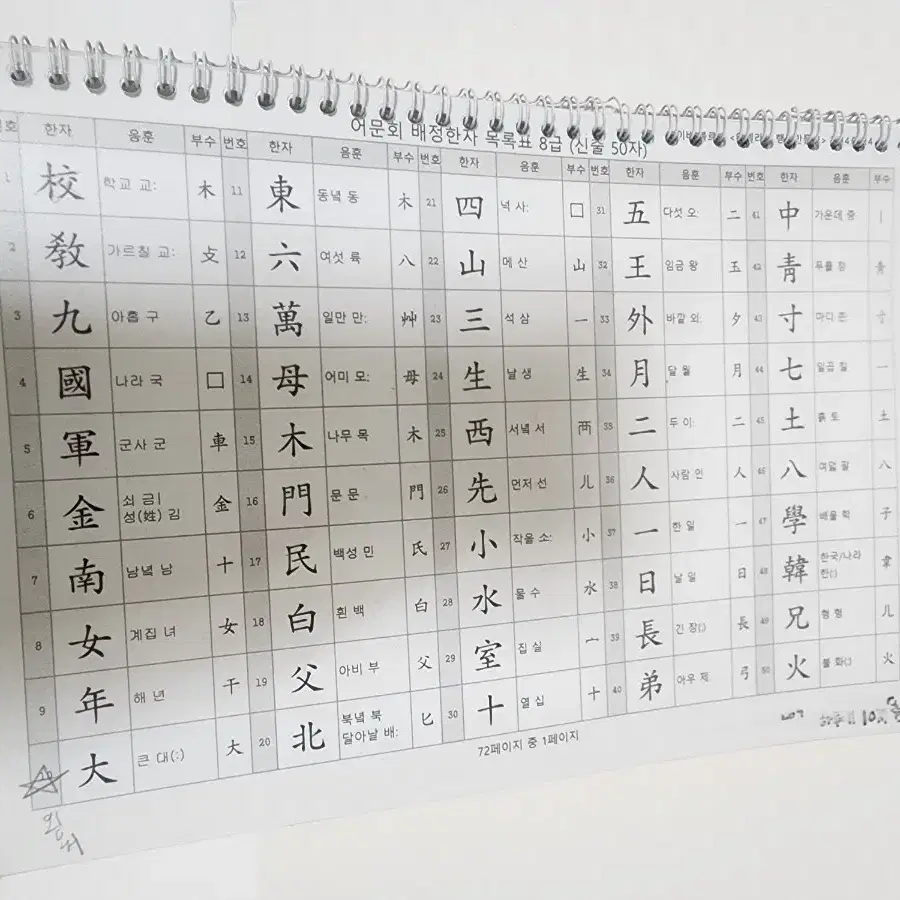 어문회 배정한자 목록표 8급 (신출 50자)
한자 음훈 부수 번호 한자 음훈 부수 번호 한자 음훈 부수 번호 한자 음훈 부수 번호 한자 음훈 부수
1 校 학교 교: 木 11 東 동녘 동 木 21 四 넉 사: 囗 31 五 다섯 오: 二 41 中 가운데 중 丨
2 敎 가르칠 교: 攴 12 六 여섯 륙 八 22 山 메 산 山 32 王 임금 왕 玉 42 靑 푸를 청 靑
3 九 아홉 구 乙 13 萬 일만 만: 艸 23 三 석 삼 一 33 外 바깥 외: 夕 43 寸 마디 촌: 寸
4 國 나라 국 囗 14 母 어미 모: 母 24 生 날 생 生 34 月 달 월 月 44 七 일곱 칠 一
5 軍 군사 군 車 15 木 나무 목 木 25 西 서녘 서 襾 35 二 두 이: 二 45 土 흙 토 土
6 金 쇠 금|
성(姓) 김 金 16 門 문 문 門 26 先 먼저 선 儿 36 人 사람 인 人 46 八 여덟 팔 八
7 南 남녘 남 十 17 民 백성 민 氏 27 小 작을 소: 小 37 一 한 일 一 47 學 배울 학 子
8 女 계집 녀 女 18 白 흰 백 白 28 水 물 수 水 38 日 날 일 日 48 韓 한국/나라
한(:) 韋
9 年 해 년 干 19 父 아비 부 父 29 室 집 실 宀 39 長 긴 장(:) 長 49 兄 형 형 儿
大 큰 대(:) 大 20 北 북녘 북
달아날 배: 匕 30 十 열 십 十 40 弟 아우 제: 弓 50 火 불 화(:) 火
72페이지 중 1페이지